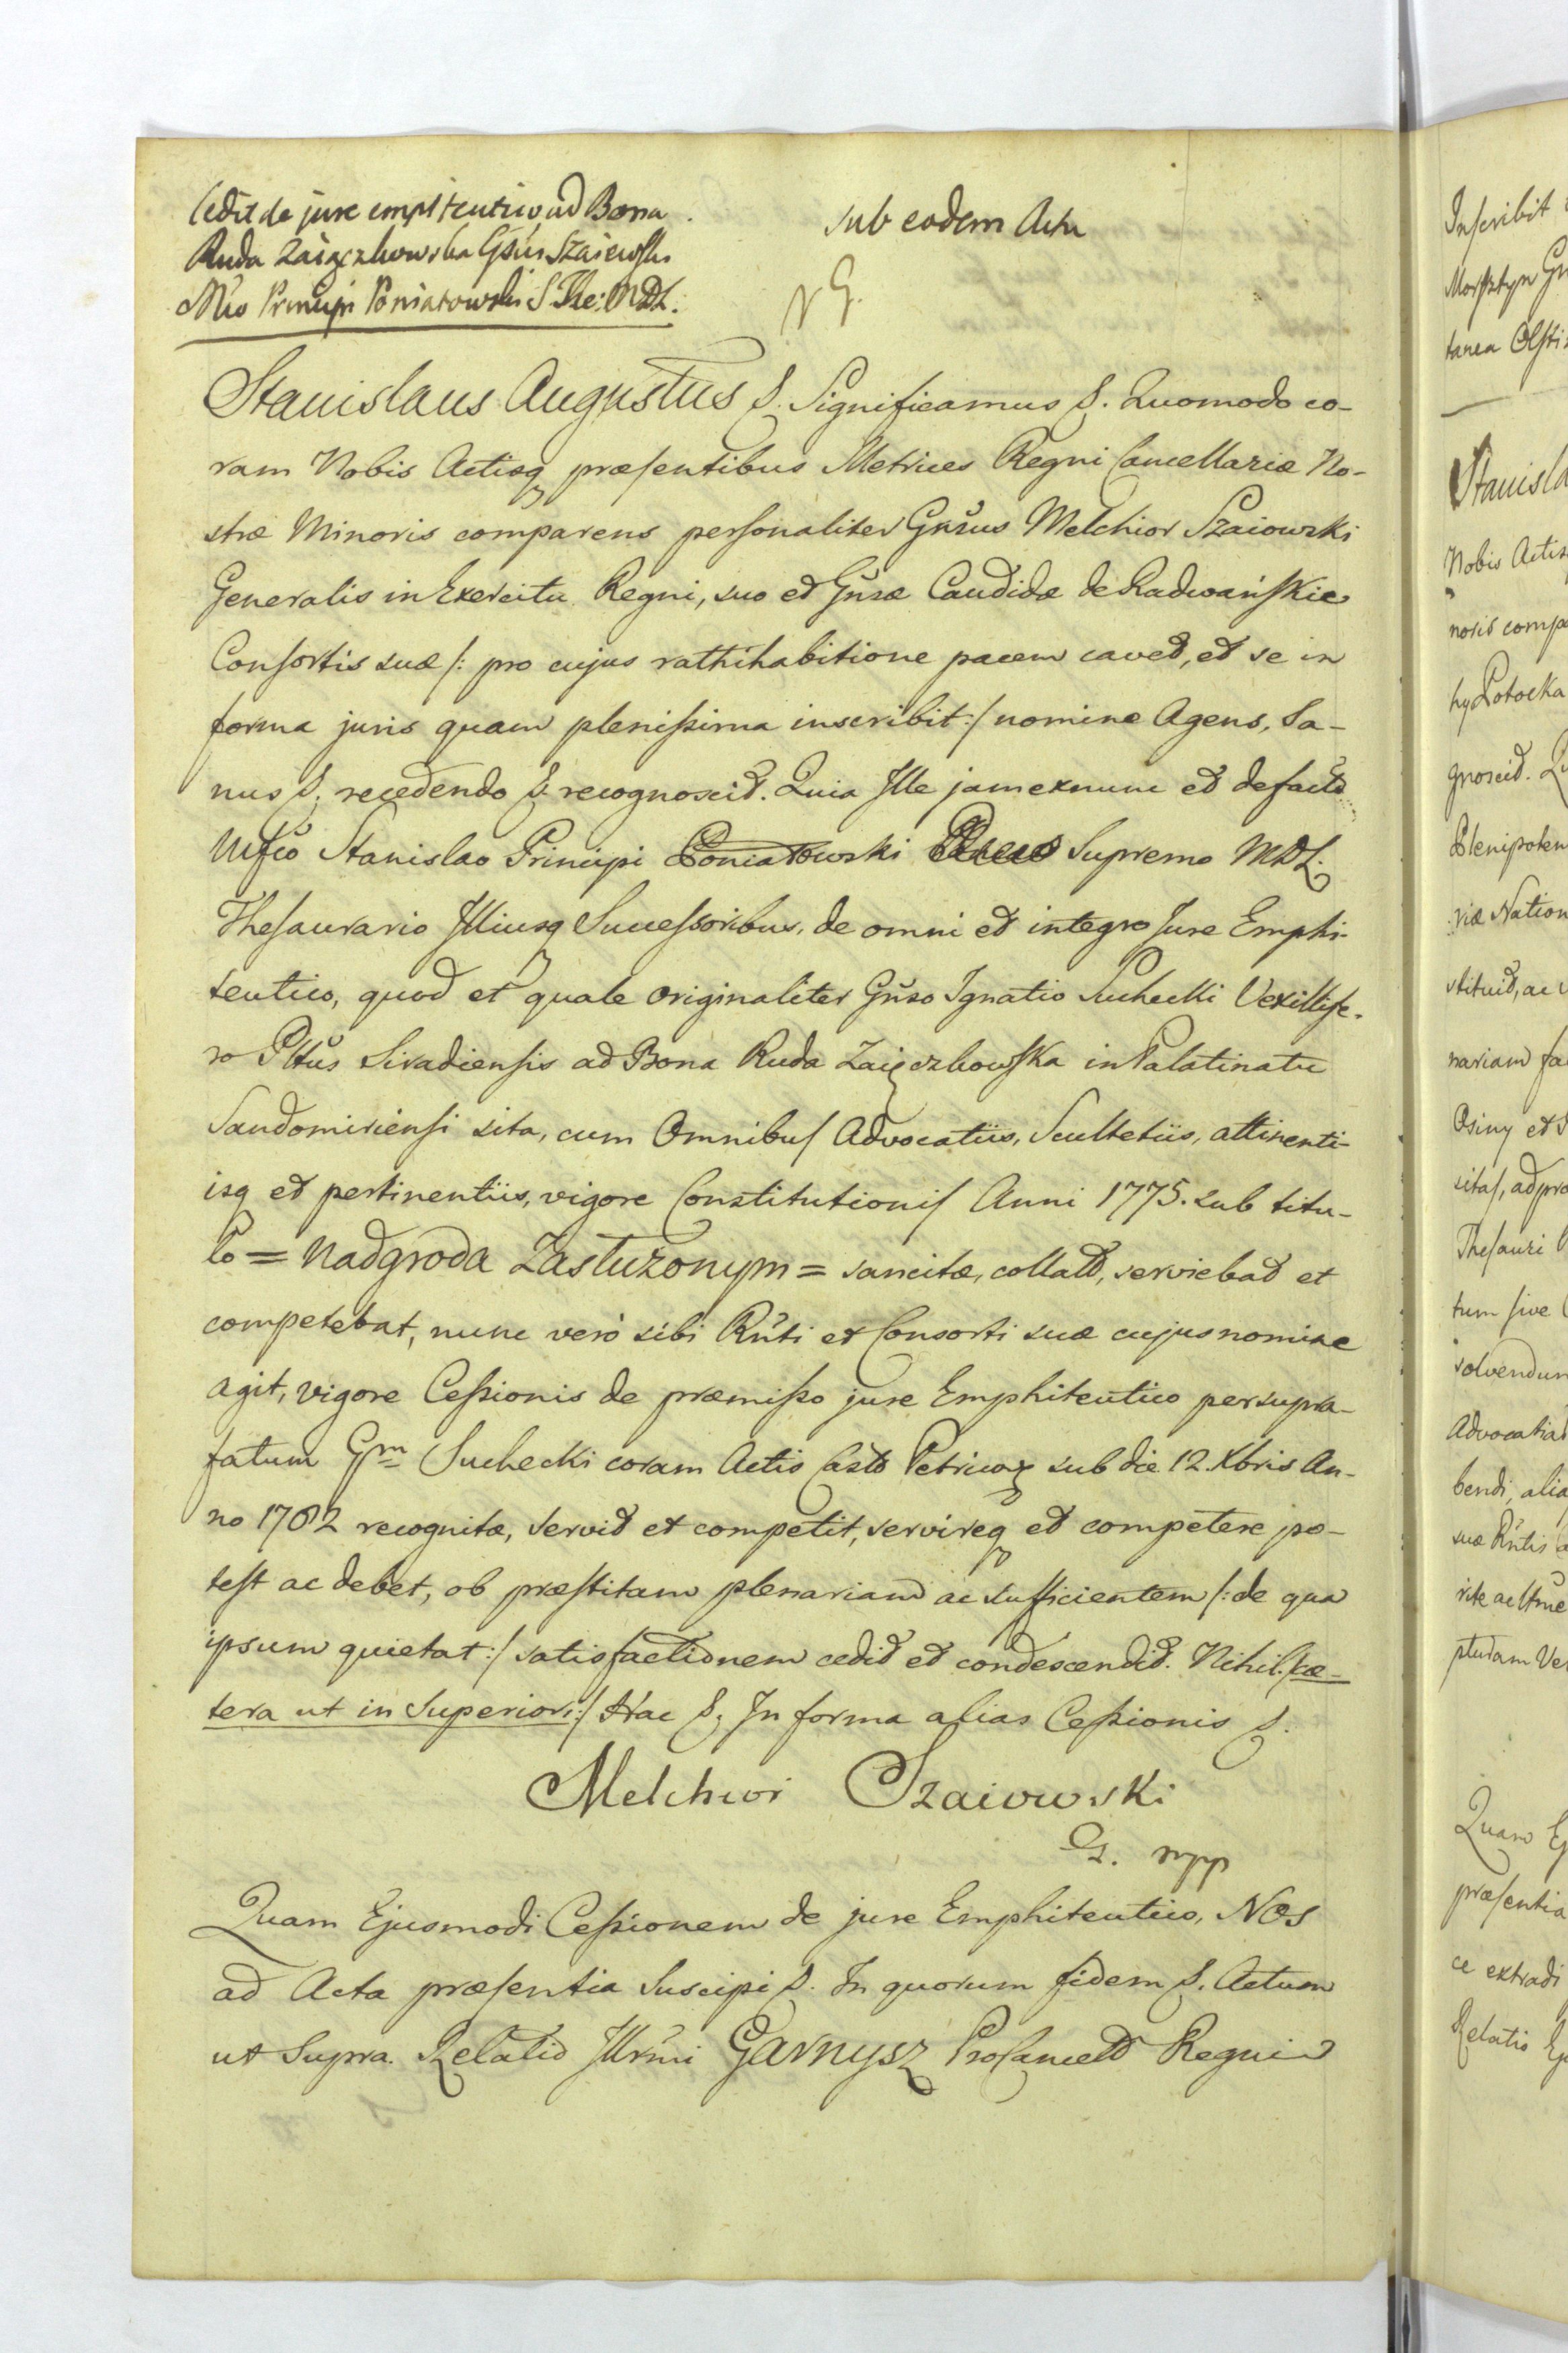 Cedit de jure emphiteutico ad Bona
Ruda Zaięczkowska Gsus Szaiewski
Mfco Principi Poniatowski S. The: MDL.
sub eodem Actu
Stanislaus Augustus S. Significamus S. Quomodo co-
ram Nobis Actisq præsentibus Metrices Regni Cancellariæ No-
stræ Minoris comparens personaliter Gnrsus Melchior Szaiowski
Generalis in Exercitu Regni, suo et Gnsæ Candidæ de Radwańskie
Consortis suæ /: pro cujus rathihabitione pacem cavet, et se in
forma juris quam plenissima inscribit :/ nomine Agens, Sa-
nus S. recedendo S. recognoscit. Quia Ille jam exnunc et defacto
Mfco Stanislao Principi Poniatowski Supremo MDL.
Thesaurario Illiusq Successoribus, de omni et integro Jure Emphi-
teutico, quod et quale originaliter Gnso Ignatio Suchecki Vexillife-
ro Pttus Siradiensis ad Bona Ruda Zaięczkowska in Palatinatu
Sandomiriensi sita, cum Omnibus Advocatiis, Scultetiis, attinenti-
isq et pertinentiis, vigore Constitutionis Anni 1775. sub titu-
lo = Nadgroda Zasłużonym = sancitæ, collato, serviebat et
competebat, nunc verò sibi Rnti et Consorti suæ cujus nomine
agit, vigore Cessionis de præmisso jure Emphiteutico per supra-
fatum Gm Suchecki coram Actis Castr Petricov sub die 12. Xbris An-
no 1782 recognitæ, servit et competit, servireq et competere po-
test ac debet, ob præstitam plenariam ac sufficientem /: de qua
ipsum quietat :/ satisfactionem cedit et condescendit. Nihil /: cæ-
tera ut in Superiori :/ Hac S. In forma alias Cessionis S.
Melchior Szaiowski
G. mpp
Quam Ejusmodi Cessionem de jure Emphiteutico, NOS
ad Acta præsentia Suscipi S. In quorum fidem S. Actum
ut Supra. Relatio Illrmi Garnysz ProCancell Regni
Inscribit
Morsztyn
Nobis Actis
noris comp
hy Potocka
gnoscit.
Plenipoten
riæ Nation
stituit, ac
nariam
Osiny et
sitas, ad pro
Thesauri
tum sive
solvendum
Advocatia
bendi, alia
suæ Rntis
Quam
præsentia
ce extradi
Relatio